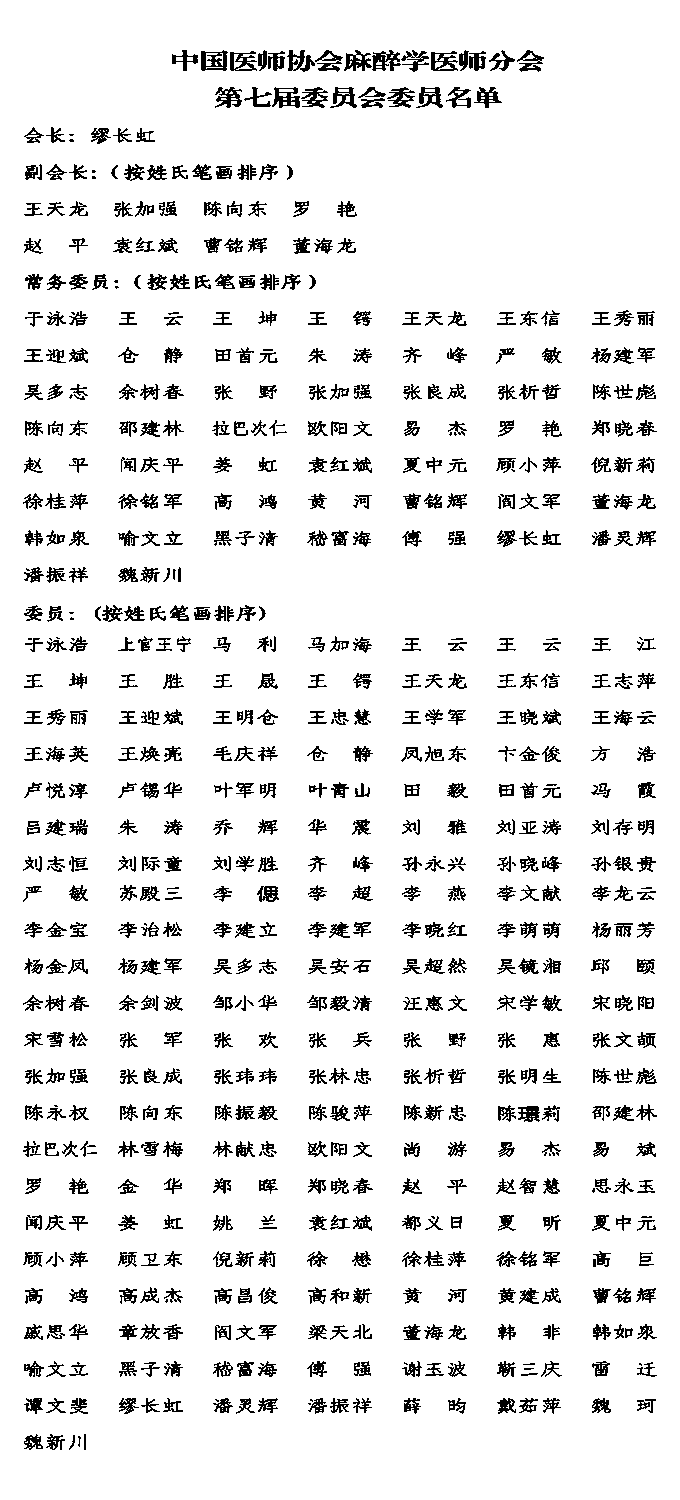 中国医师协会麻醉学医师分会
第七届委员会委员名单
会长：缪长虹
副会长：（按姓氏笔画排序）
王天龙 张加强 陈向东 罗 艳
赵 平 袁红斌 曹铭辉 董海龙
常务委员：（按姓氏笔画排序）
于泳浩 王 云 王 坤 王 锷 王天龙 王东信 王秀丽
王迎斌 仓 静 田首元 朱 涛 齐 峰 严 敏 杨建军
吴多志 余树春 张 野 张加强 张良成 张析哲 陈世彪
陈向东 邵建林 拉巴次仁 欧阳文 易 杰 罗 艳 郑晓春
赵 平 闻庆平 姜 虹 袁红斌 夏中元 顾小萍 倪新莉
徐桂萍 徐铭军 高 鸿 黄 河 曹铭辉 阎文军 董海龙
韩如泉 喻文立 黑子清 嵇富海 傅 强 缪长虹 潘灵辉
潘振祥 魏新川
委员：（按姓氏笔画排序）
于泳浩 上官王宁 马 利 马加海 王 云 王 云 王 江
王 坤 王 胜 王 晟 王 锷 王天龙 王东信 王志萍
王秀丽 王迎斌 王明仓 王忠慧 王学军 王晓斌 王海云
王海英 王焕亮 毛庆祥 仓 静 凤旭东 卞金俊 方 浩
卢悦淳 卢锡华 叶军明 叶青山 田 毅 田首元 冯 霞
吕建瑞 朱 涛 乔 辉 华 震 刘 雅 刘亚涛 刘存明
刘志恒 刘际童 刘学胜 齐 峰 孙永兴 孙晓峰 孙银贵
严 敏 苏殿三 李 偲 李 超 李 燕 李文献 李龙云
李金宝 李治松 李建立 李建军 李晓红 李萌萌 杨丽芳
杨金凤 杨建军 吴多志 吴安石 吴超然 吴镜湘 邱 颐
余树春 余剑波 邹小华 邹毅清 汪惠文 宋学敏 宋晓阳
宋雪松 张 军 张 欢 张 兵 张 野 张 惠 张文颉
张加强 张良成 张玮玮 张林忠 张析哲 张明生 陈世彪
陈永权 陈向东 陈振毅 陈骏萍 陈新忠 陈璟莉 邵建林
拉巴次仁 林雪梅 林献忠 欧阳文 尚 游 易 杰 易 斌
罗 艳 金 华 郑 晖 郑晓春 赵 平 赵智慧 思永玉
闻庆平 姜 虹 姚 兰 袁红斌 都义日 夏 昕 夏中元
顾小萍 顾卫东 倪新莉 徐 懋 徐桂萍 徐铭军 高 巨
高 鸿 高成杰 高昌俊 高和新 黄 河 黄建成 曹铭辉
戚思华 章放香 阎文军 梁天北 董海龙 韩 非 韩如泉
喻文立 黑子清 嵇富海 傅 强 谢玉波 靳三庆 雷 迁
谭文斐 缪长虹 潘灵辉 潘振祥 薛 昀 戴茹萍 魏 珂
魏新川